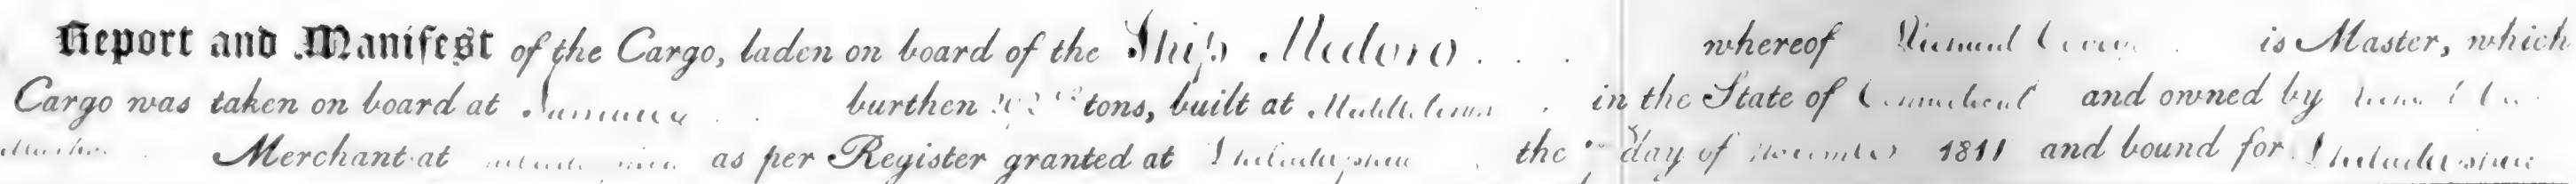 Report and Manifest of the Cargo, laden on board of the Ship Medoro whereof is Master, which
Cargo was taken on board at Jamaica burthen tons, built at Middletown in the State of Connecticut and owned by
Merchant at as per Register granted at Philadelphia the day of November 1811 and bound for Philadelphia